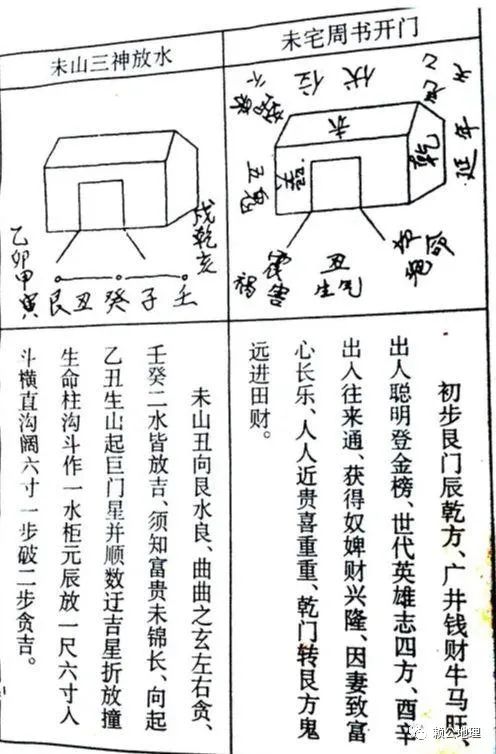 未宅周书开门
伏位
延年
未
乾
五鬼
丑
生气
害
初步艮门辰乾方、广井钱财牛马旺、
出人聪明登金榜、世代英雄志四方、酉辛
出人往来通、获得奴婢财兴隆、因妻致富
心长乐、人人近贵喜重重、乾门转艮方鬼
远进田财。
未山三神放水
戌乾亥
乙卯甲寅
艮丑癸子壬
未山丑向艮水良、曲曲之玄左右贪、
壬癸二水皆放吉、须知富贵未锦长、向起
乙丑生山起巨门星并顺数迂吉星折放撞
生命柱沟斗作一水柜元辰放一尺六寸人
斗横直沟阔六寸一步破二步贪吉。
赖公地理